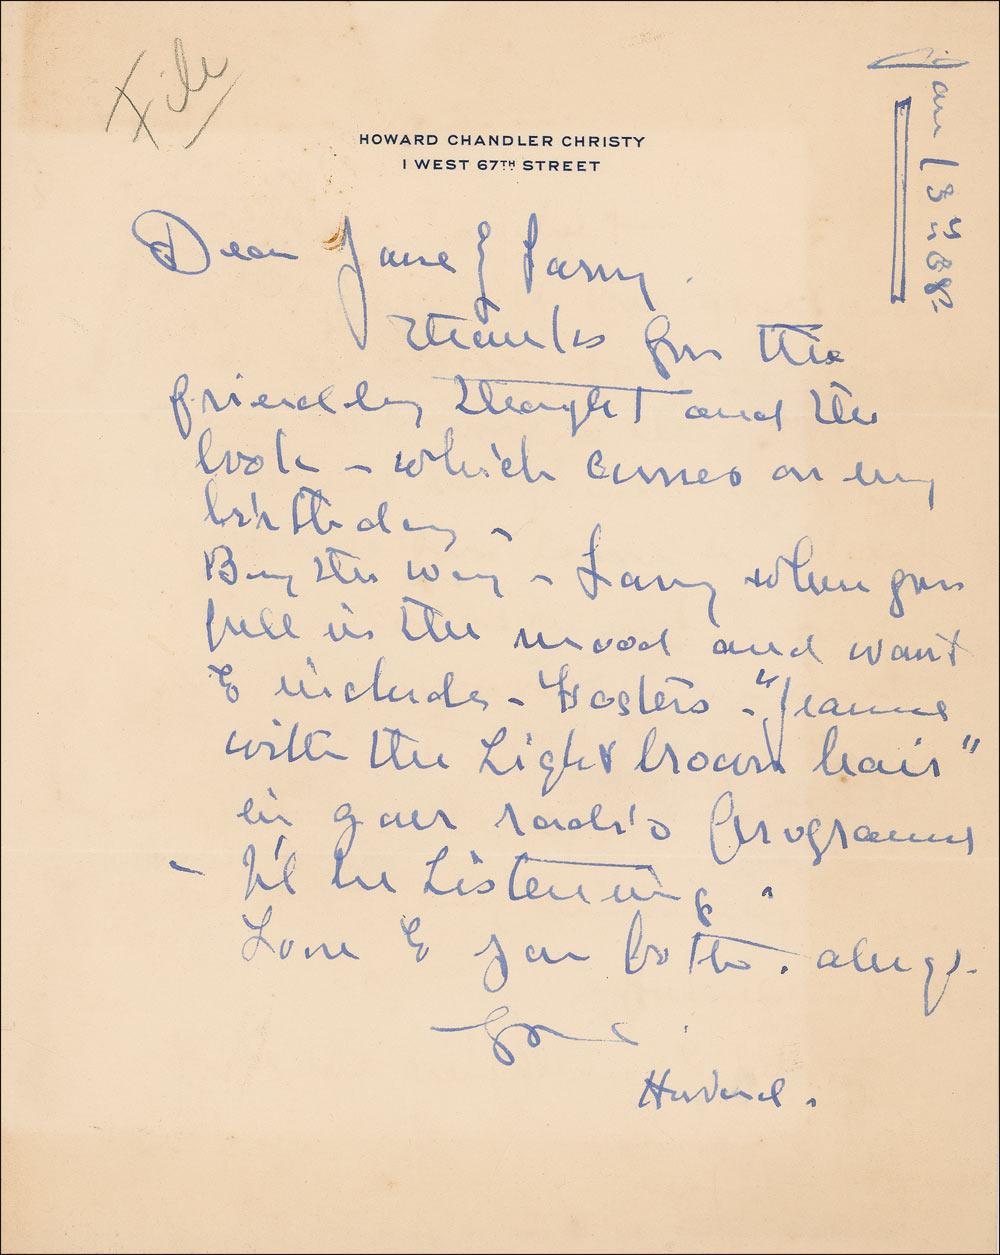 File
HOWARD CHANDLER CHRISTY
1 WEST 67TH STREET
Jan 13
Dear Jane & Larry.
Thanks for the
friendly thought and the
book - which comes on my
birthday -
By the way - Larry when you
feel in the mood and want
to include - Fosters - "Jeanne
with the Light brown hair"
in your radio programme
- I'll be Listening.
Love to you both. always.
Howard.